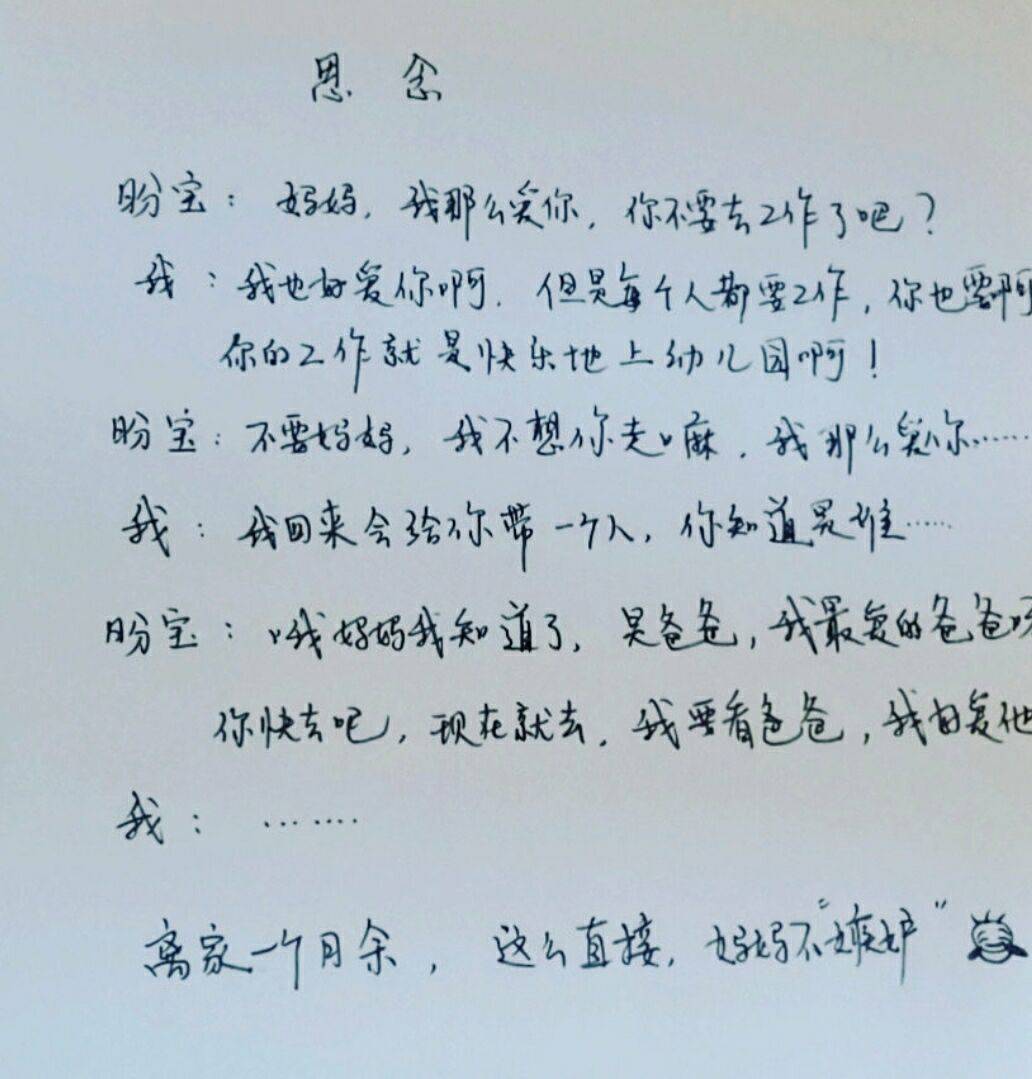 思念
盼宝：妈妈，我那么爱你，你不要去工作了吧？
我：我也好爱你啊，但是每个人都要工作，你也要啊
你的工作就是快乐地上幼儿园啊！
盼宝：不要妈妈，我不想你走嘛，我那么爱你……
我：我回来会给你带一个人，你知道是谁……
盼宝：哦妈妈我知道了，是爸爸，我最爱的爸爸呀
你快去吧，现在就去，我要看爸爸，我好爱他
我：……
离家一个月余，这么直接，妈妈不“嫉妒”